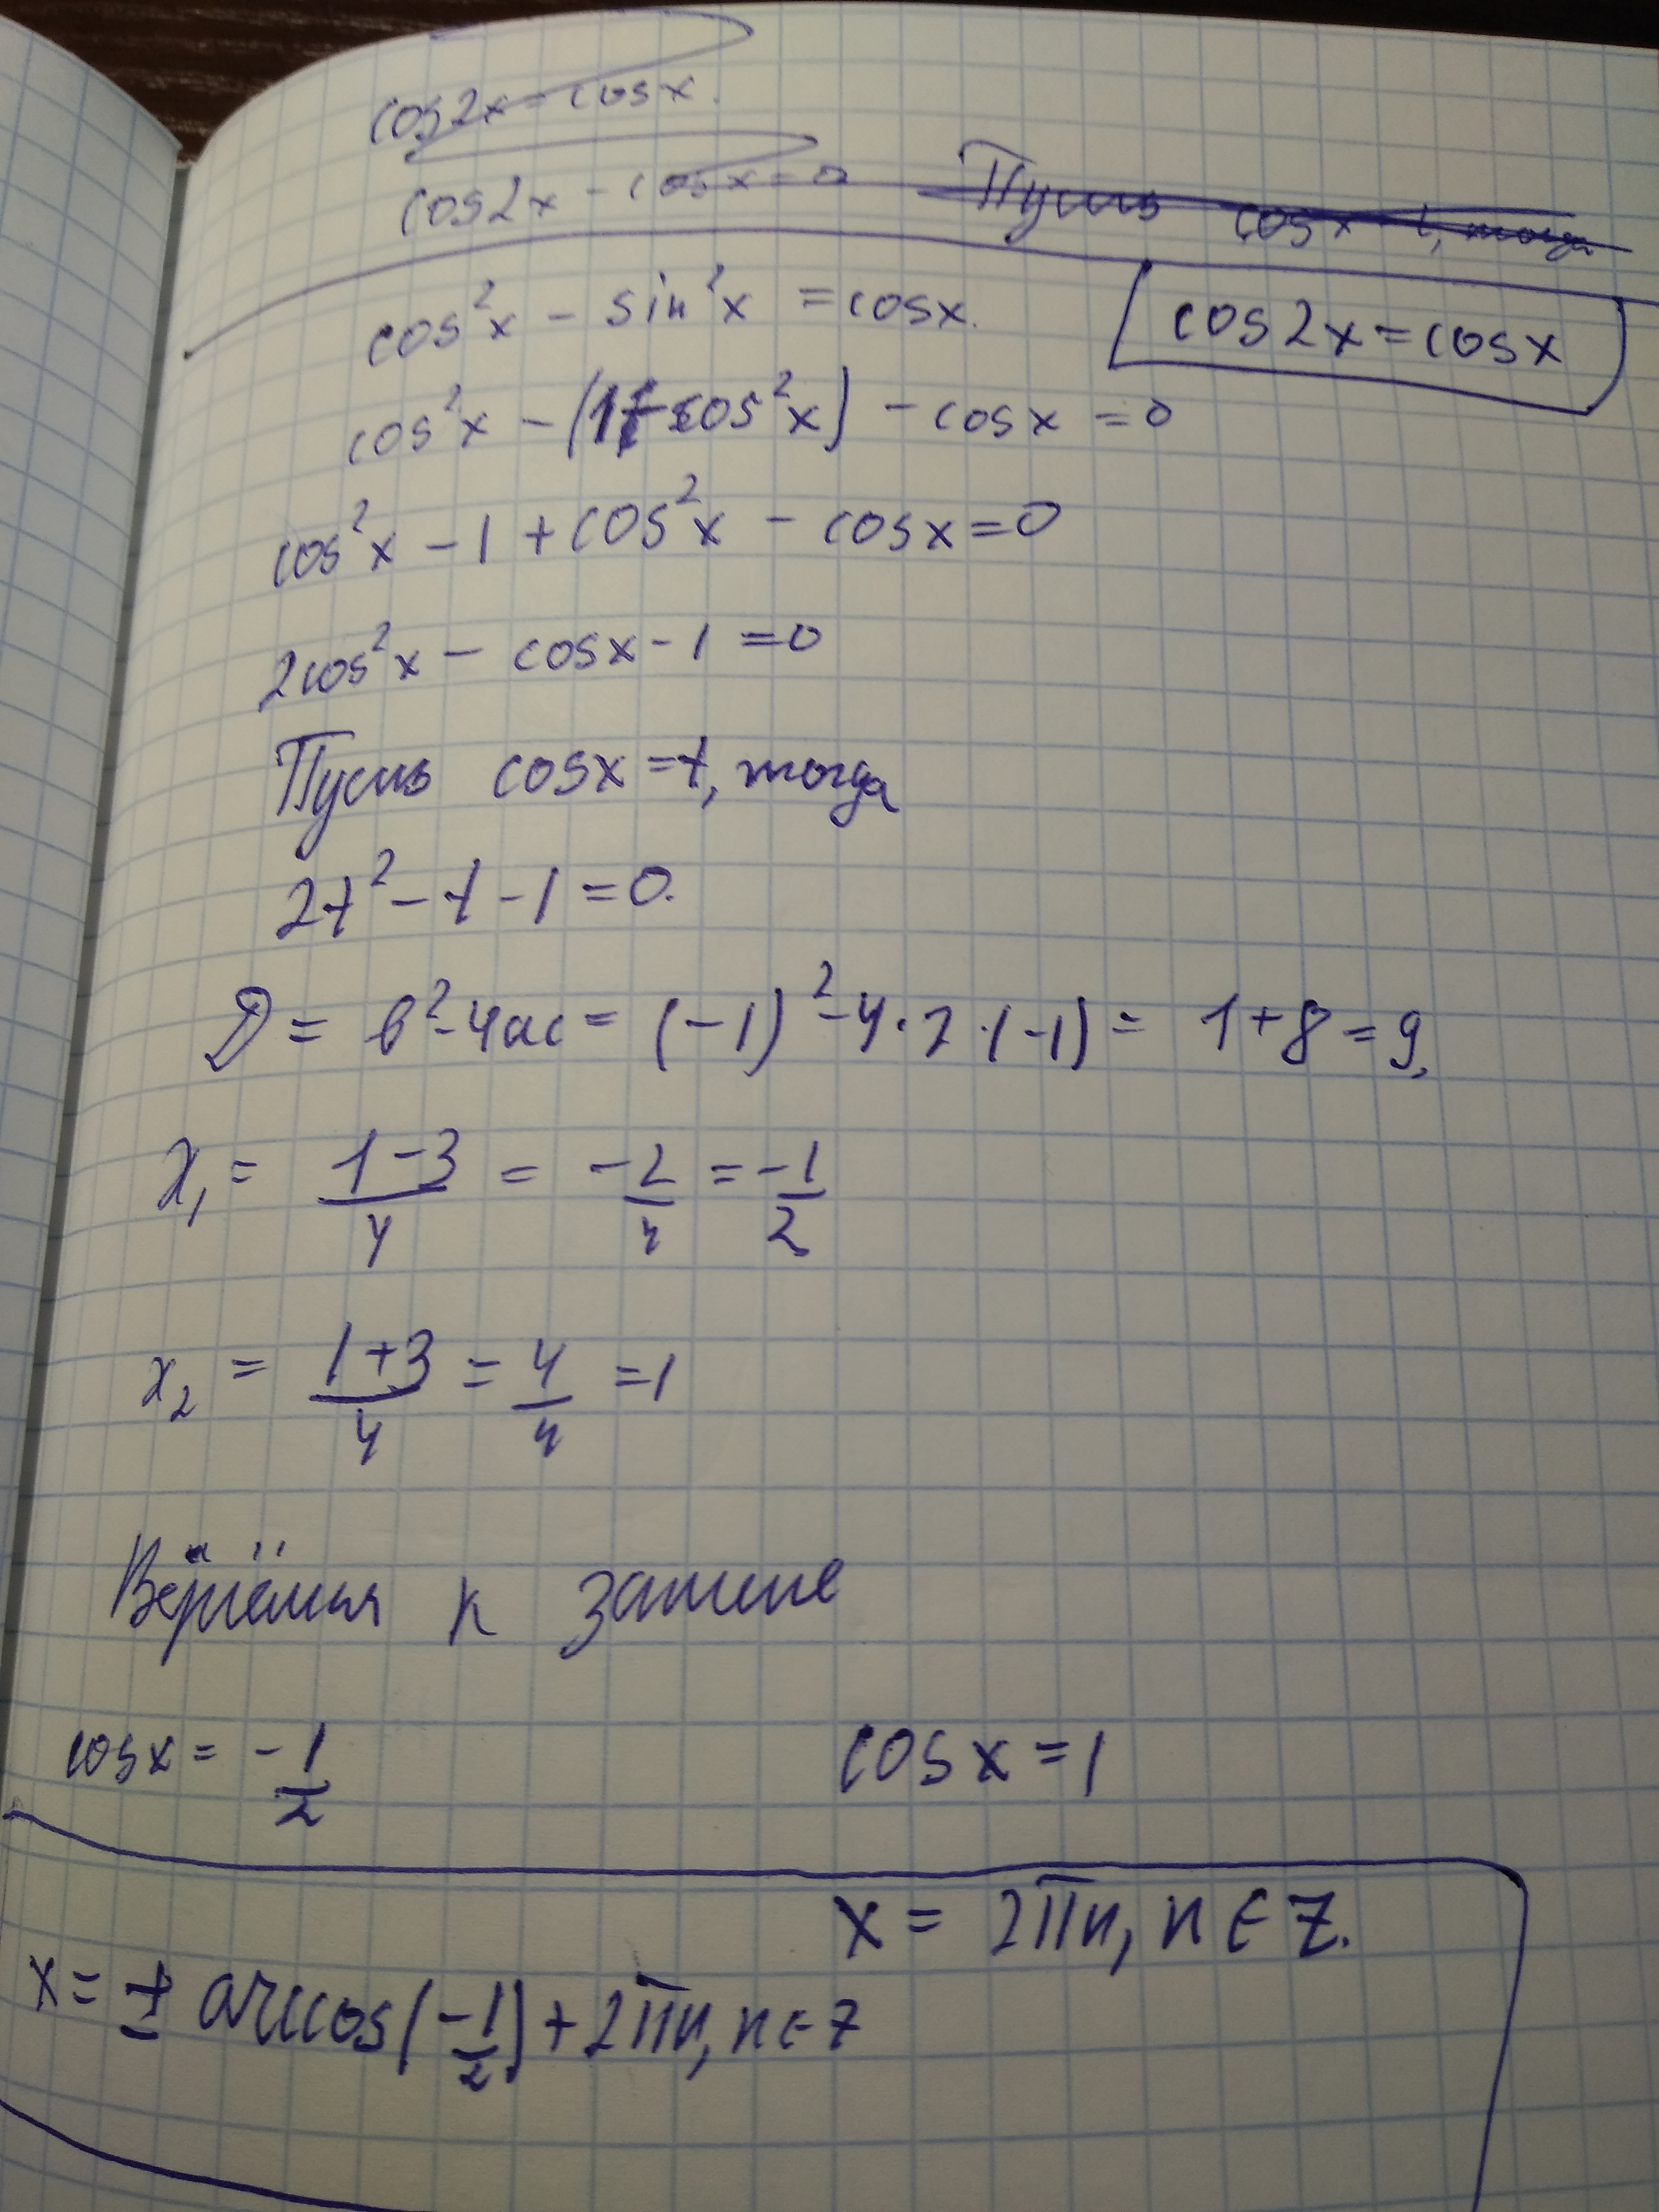 cos2x = cosx.
cos2x - cosx = 0 Пусть cosx = t, тогда
cos²x - sin²x = cosx.
cos2x = cosx
cos²x - (1 - cos²x) - cosx = 0
cos²x - 1 + cos²x - cosx = 0
2cos²x - cosx - 1 = 0
Пусть cosx = t, тогда
2t² - t - 1 = 0.
D = b² - 4ac = (-1)² - 4 · 2 · (-1) = 1 + 8 = 9,
x₁ = (1-3)/4 = -2/4 = -1/2
x₂ = (1+3)/4 = 4/4 = 1
Вернёмся к замене
cosx = -1/2 cosx = 1
x = 2πn, n ∈ Z.
x = ± arccos(-1/2) + 2πn, n ∈ Z